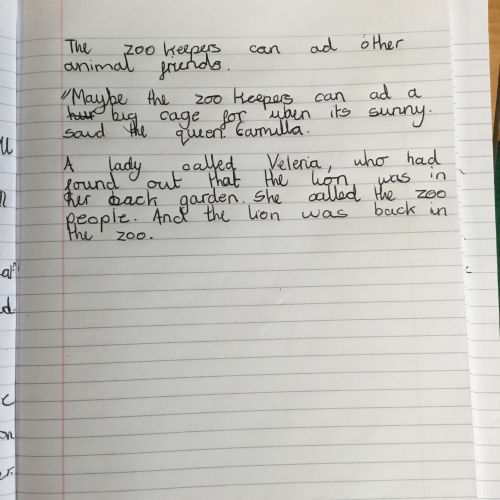 The zoo keepers can ad other
animal friends.
"Maybe the zoo keepers can ad a
big cage for when its sunny.
said the queen Camilla.
A lady called Veleria, who had
found out that the lion was in
her back garden. She called the zoo
people. And the lion was back in
the zoo.